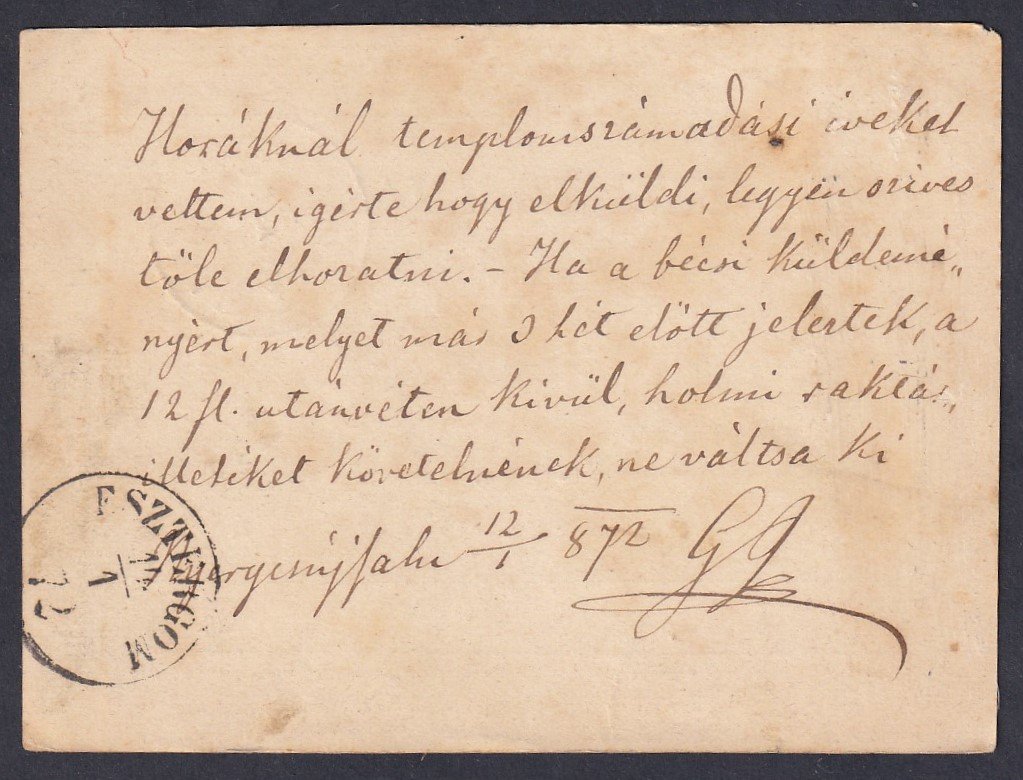 Horáknál templomszámadási iveket
vettem, igérte hogy elküldi, legyen szives
töle elhozatni. – Ha a bécsi küldemé„
nyért, melyet már 3 hét elött jeleztek, a
12 fl. utánvéten kivül, holmi raktár„
illetéket követelnének, ne váltsa ki
Nyergesújfalu 12/1 872 GJ
ESZTERGOM
1
72